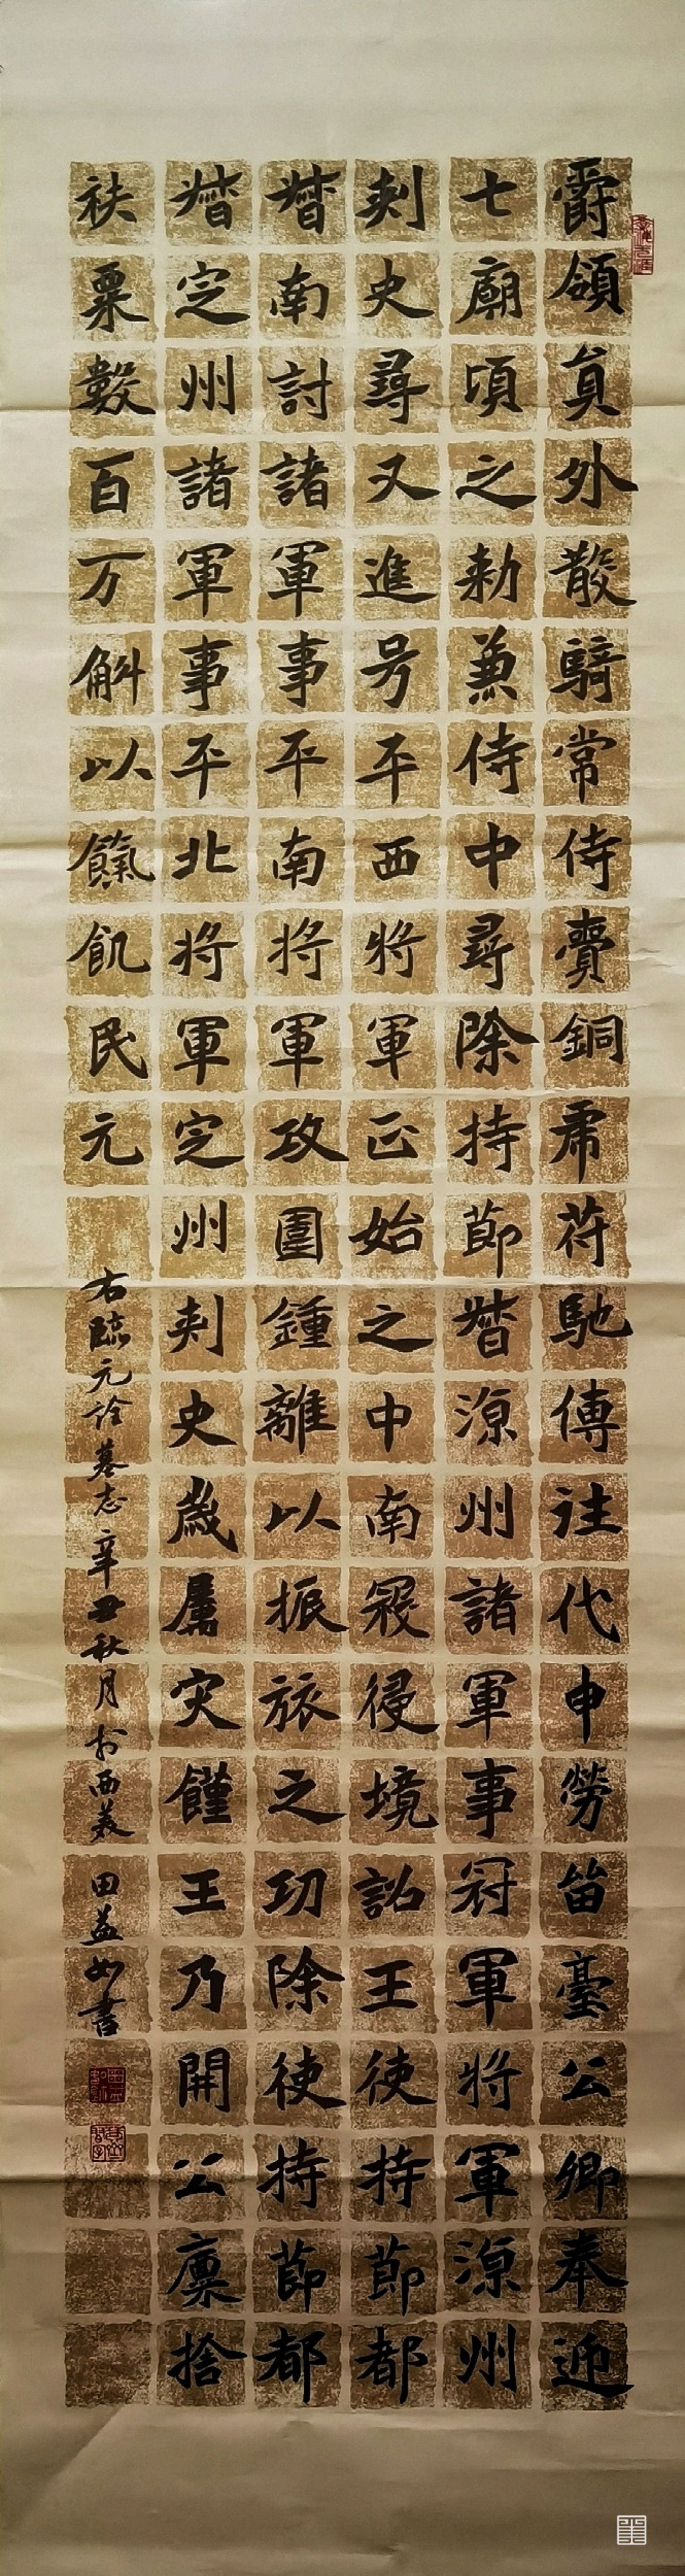 爵領員外散騎常侍賫銅虎苻馳傳往代申勞留臺公卿奉迎
七廟頃之勑兼侍中尋除持節督涼州諸軍事冠軍將軍涼州
刺史尋又進号平西將軍正始之中南寇侵境詔王使持節都
督南討諸軍事平南將軍攻圍鍾離以振旅之功除使持節都
督定州諸軍事平北將軍定州刺史歲屬灾饉王乃開公廩捨
秩粟數百万斛以餼飢民元
右臨元詮墓志辛丑秋月於西美 田益如書